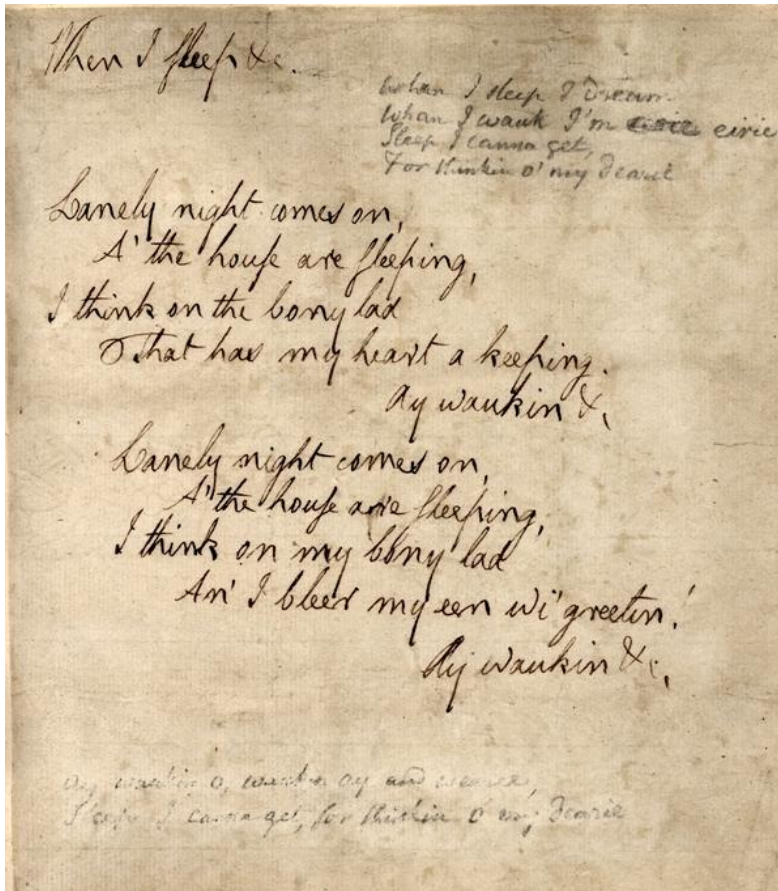 When I sleep &c.
Whan I sleep I dream
Whan I wauk I'm eirie
Sleep I canna get,
For thinkin o' my dearie
Lanely night comes on,
A' the house are sleeping,
I think on the bony lad
That has my heart a keeping.
Ay waukin &c
Lanely night comes on,
A' the house are sleeping,
I think on my bony lad
An' I bleer my een wi' greetin!
Ay waukin &c.
Ay waukin o, waukin ay and wearie,
Sleep I canna get, for thinkin o' my dearie